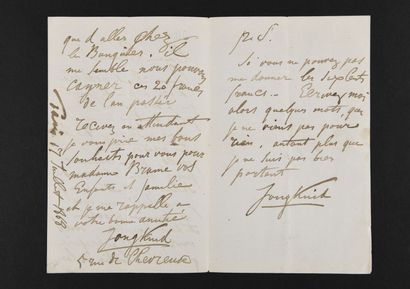 que d'aller chez
le Banquier. il
me semble nous pouvez
ces 20 francs
de l'an passé
recevez en attendant
je vous prie mes bons
souhaits pour vous pour
madame Brame vos
Enfants et famille
et je me rappelle a
votre bonne amitié
Jongkind
5 rue de Chevreuse
Paris 1 Juillet 1868
P.S.
Si vous ne pouvez pas
me donner les dix
francs. Ecrivez moi
alors quelques mots, que
je ne viens pas pour
rien, autant plus que
je ne suis pas bien
portant
Jongkind